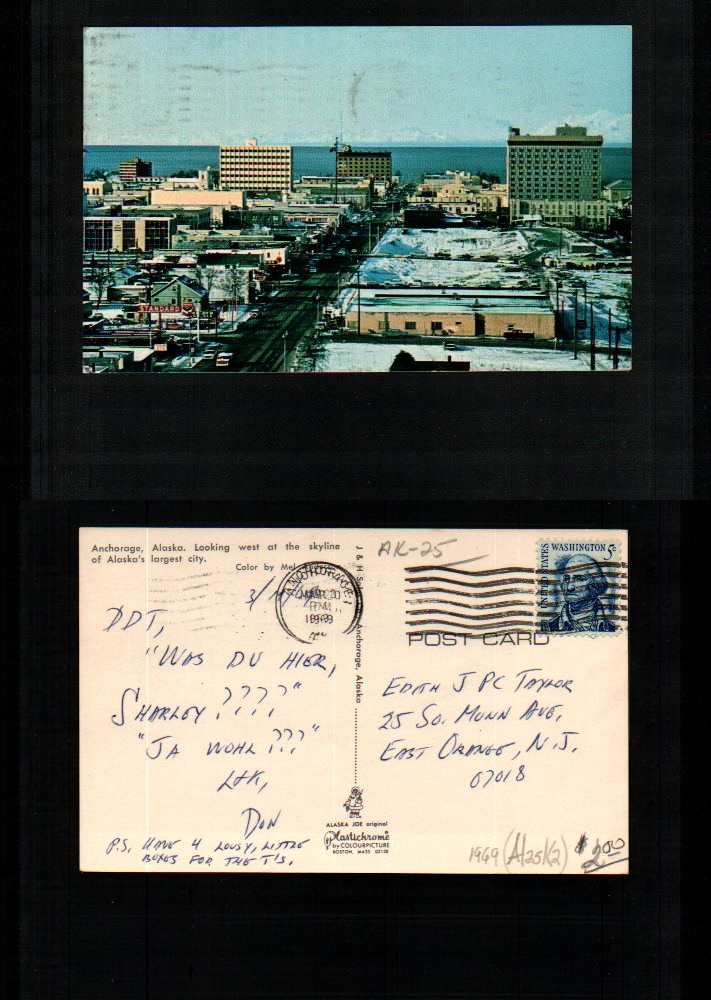 STANDARD
Anchorage, Alaska. Looking west at the skyline
of Alaska's largest city.
Color by Mel
AK-25
ANCHORAGE
MAR 20
PM
1969
UNITED STATES
WASHINGTON 5c
POST CARD
3/
DDT,
"WAS DU HIER,
SHARLEY ????"
"JA WOHL ???"
L&K,
DON
P.S. HAVE 4 LOUSY, LITTLE
BOXES FOR THE T'S.
J & H Anchorage, Alaska
EDITH J PC TAYLOR
25 SO. MUNN AVE,
EAST ORANGE, N.J.
07018
ALASKA JOE original
Plastichrome
by COLOURPICTURE
BOSTON, MASS 02130
1969 (A125K2) $2.00